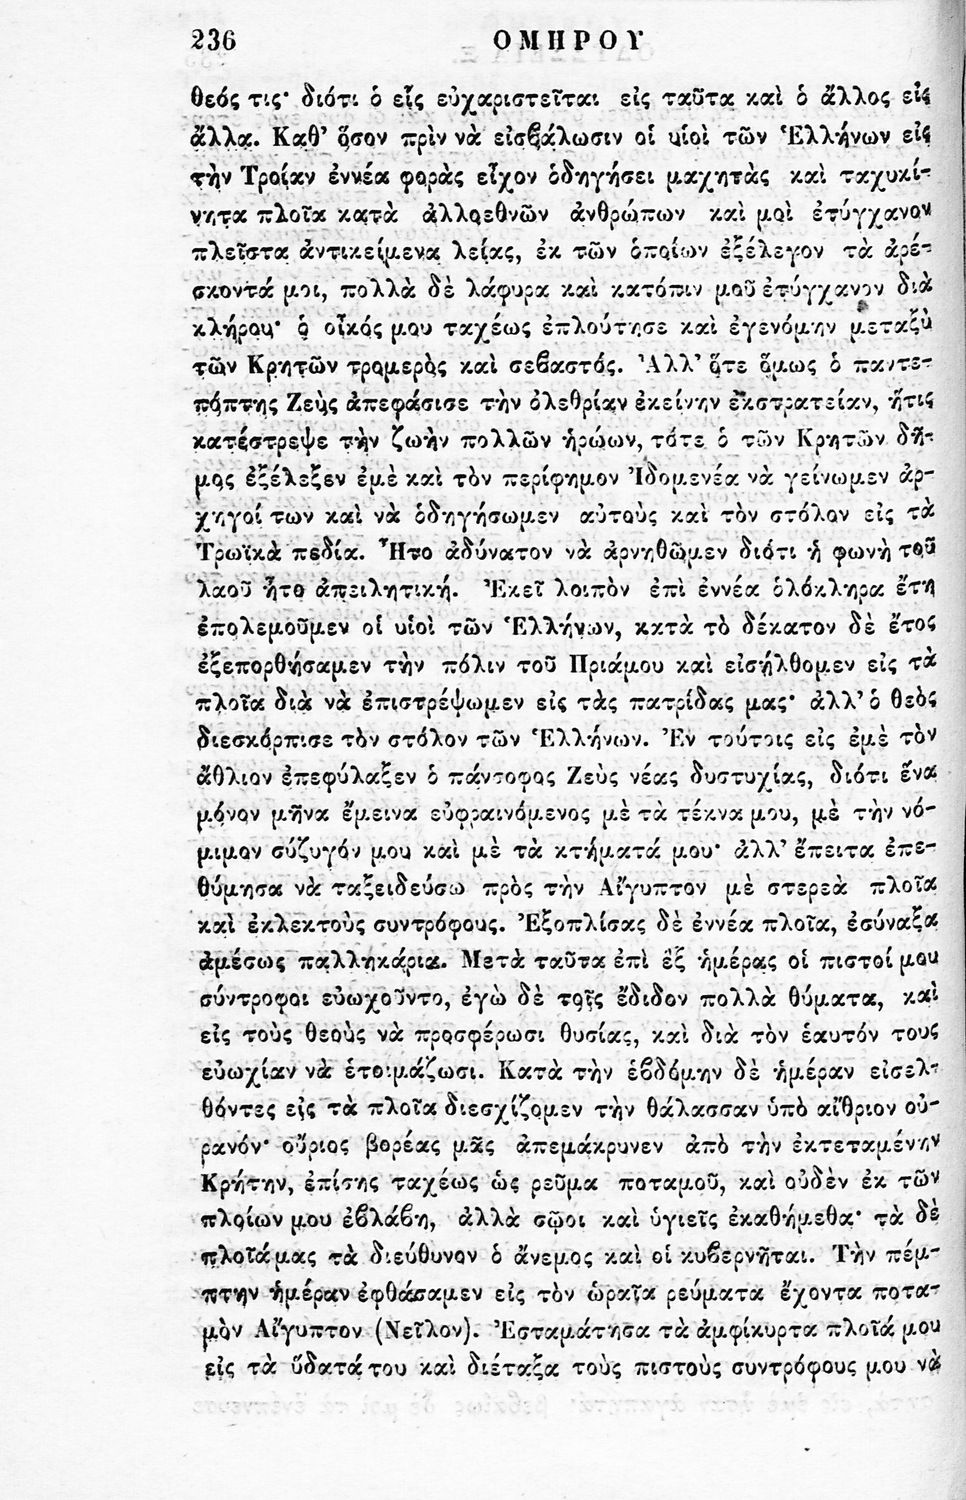 236 ΟΜΗΡΟΥ
θεός τις· διότι ὁ εἷς εὐχαριστεῖται εἰς ταῦτα καὶ ὁ ἄλλος εἰς
ἄλλα. Καθ’ ὅσον πρὶν νὰ εἰσβάλωσιν οἱ υἱοὶ τῶν Ἑλλήνων εἰς
τὴν Τροίαν ἐννέα φορὰς εἶχον ὁδηγήσει μαχητὰς καὶ ταχυκί-
νητα πλοῖα κατὰ ἀλλοεθνῶν ἀνθρώπων καὶ μοὶ ἐτύγχανον
πλεῖστα ἀντικείμενα λείας, ἐκ τῶν ὁποίων ἐξέλεγον τὰ ἀρέ-
σκοντά μοι, πολλὰ δὲ λάφυρα καὶ κατόπιν μοῦ ἐτύγχανον διὰ
κλήρου· ὁ οἶκός μου ταχέως ἐπλούτησε καὶ ἐγενόμην μεταξὺ
τῶν Κρητῶν τρομερὸς καὶ σεβαστός. Ἀλλ’ ὅτε ὅμως ὁ παντε-
πόπτης Ζεὺς ἀπεφάσισε τὴν ὀλεθρίαν ἐκείνην ἐκστρατείαν, ἥτις
κατέστρεψε τὴν ζωὴν πολλῶν ἡρώων, τότε ὁ τῶν Κρητῶν δῆ-
μος ἐξέλεξεν ἐμὲ καὶ τὸν περίφημον Ἰδομενέα νὰ γείνωμεν ἀρ-
χηγοί των καὶ νὰ ὁδηγήσωμεν αὐτοὺς καὶ τὸν στόλον εἰς τὰ
Τρωϊκὰ πεδία. Ἦτο ἀδύνατον νὰ ἀρνηθῶμεν διότι ἡ φωνὴ τοῦ
λαοῦ ἦτο ἀπειλητική. Ἐκεῖ λοιπὸν ἐπὶ ἐννέα ὁλόκληρα ἔτη
ἐπολεμοῦμεν οἱ υἱοὶ τῶν Ἑλλήνων, κατὰ τὸ δέκατον δὲ ἔτος
ἐξεπορθήσαμεν τὴν πόλιν τοῦ Πριάμου καὶ εἰσήλθομεν εἰς τὰ
πλοῖα διὰ νὰ ἐπιστρέψωμεν εἰς τὰς πατρίδας μας· ἀλλ’ ὁ θεὸς
διεσκόρπισε τὸν στόλον τῶν Ἑλλήνων. Ἐν τούτοις εἰς ἐμὲ τὸν
ἄθλιον ἐπεφύλαξεν ὁ πάνσοφος Ζεὺς νέας δυστυχίας, διότι ἕνα
μόνον μῆνα ἔμεινα εὐφραινόμενος μὲ τὰ τέκνα μου, μὲ τὴν νό-
μιμον σύζυγόν μου καὶ μὲ τὰ κτήματά μου· ἀλλ’ ἔπειτα ἐπε-
θύμησα νὰ ταξειδεύσω πρὸς τὴν Αἴγυπτον μὲ στερεὰ πλοῖα
καὶ ἐκλεκτοὺς συντρόφους. Ἐξοπλίσας δὲ ἐννέα πλοῖα, ἐσύναξα
ἀμέσως παλληκάρια. Μετὰ ταῦτα ἐπὶ ἓξ ἡμέρας οἱ πιστοί μου
σύντροφοι εὐωχοῦντο, ἐγὼ δὲ τοῖς ἔδιδον πολλὰ θύματα, καὶ
εἰς τοὺς θεοὺς νὰ προσφέρωσι θυσίας, καὶ διὰ τὸν ἑαυτόν τους
εὐωχίαν νὰ ἑτοιμάζωσι. Κατὰ τὴν ἑβδόμην δὲ ἡμέραν εἰσελ-
θόντες εἰς τὰ πλοῖα διεσχίζομεν τὴν θάλασσαν ὑπὸ αἴθριον οὐ-
ρανόν· οὔριος βορέας μᾶς ἀπεμάκρυνεν ἀπὸ τὴν ἐκτεταμένην
Κρήτην, ἐπίσης ταχέως ὡς ρεῦμα ποταμοῦ, καὶ οὐδὲν ἐκ τῶν
πλοίων μου ἐβλάβη, ἀλλὰ σῷοι καὶ ὑγιεῖς ἐκαθήμεθα· τὰ δὲ
πλοῖά μας τὰ διεύθυνον ὁ ἄνεμος καὶ οἱ κυβερνῆται. Τὴν πέμ-
πτην ἡμέραν ἐφθάσαμεν εἰς τὸν ὡραῖα ρεύματα ἔχοντα ποτα-
μὸν Αἴγυπτον (Νεῖλον). Ἐσταμάτησα τὰ ἀμφίκυρτα πλοῖά μου
εἰς τὰ ὕδατά του καὶ διέταξα τοὺς πιστοὺς συντρόφους μου νὰ